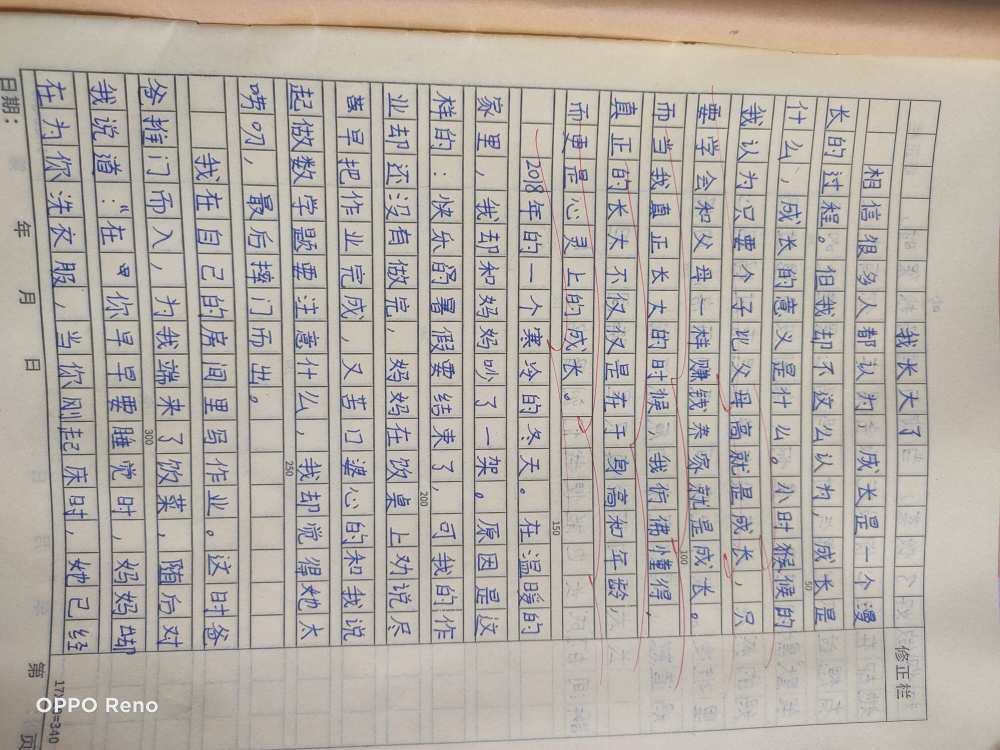 我长大了
相信很多人都认为，成长是一个漫
长的过程。但我却不这么认为，成长是
什么，成长的意义是什么。小时候的
我认为只要个子比父母高就是成长，只
要学会和父母一样赚钱养家就是成长。
而当我真正长大的时候，我仿佛懂得，
真正的长大不仅仅是在于身高和年龄，
而更是心灵上的成长。
2018年的一个寒冷的冬天。在温暖的
家里，我却和妈妈吵了一架。原因是这
样的：快乐的暑假要结束了，可我的作
业却还没有做完，妈妈在饭桌上劝说尽
早把作业完成，又苦口婆心的和我说
起做数学题要注意什么，我却觉得她太
唠叨，最后摔门而出。
我在自己的房间里写作业。这时爸
爸推门而入，为我端来了饭菜，随后对
我说道：“在你早早要睡觉时，妈妈却
在为你洗衣服，当你刚起床时，她已经
修正栏
50
100
150
200
250
300
日期： 年 月 日
第 页
OPPO Reno